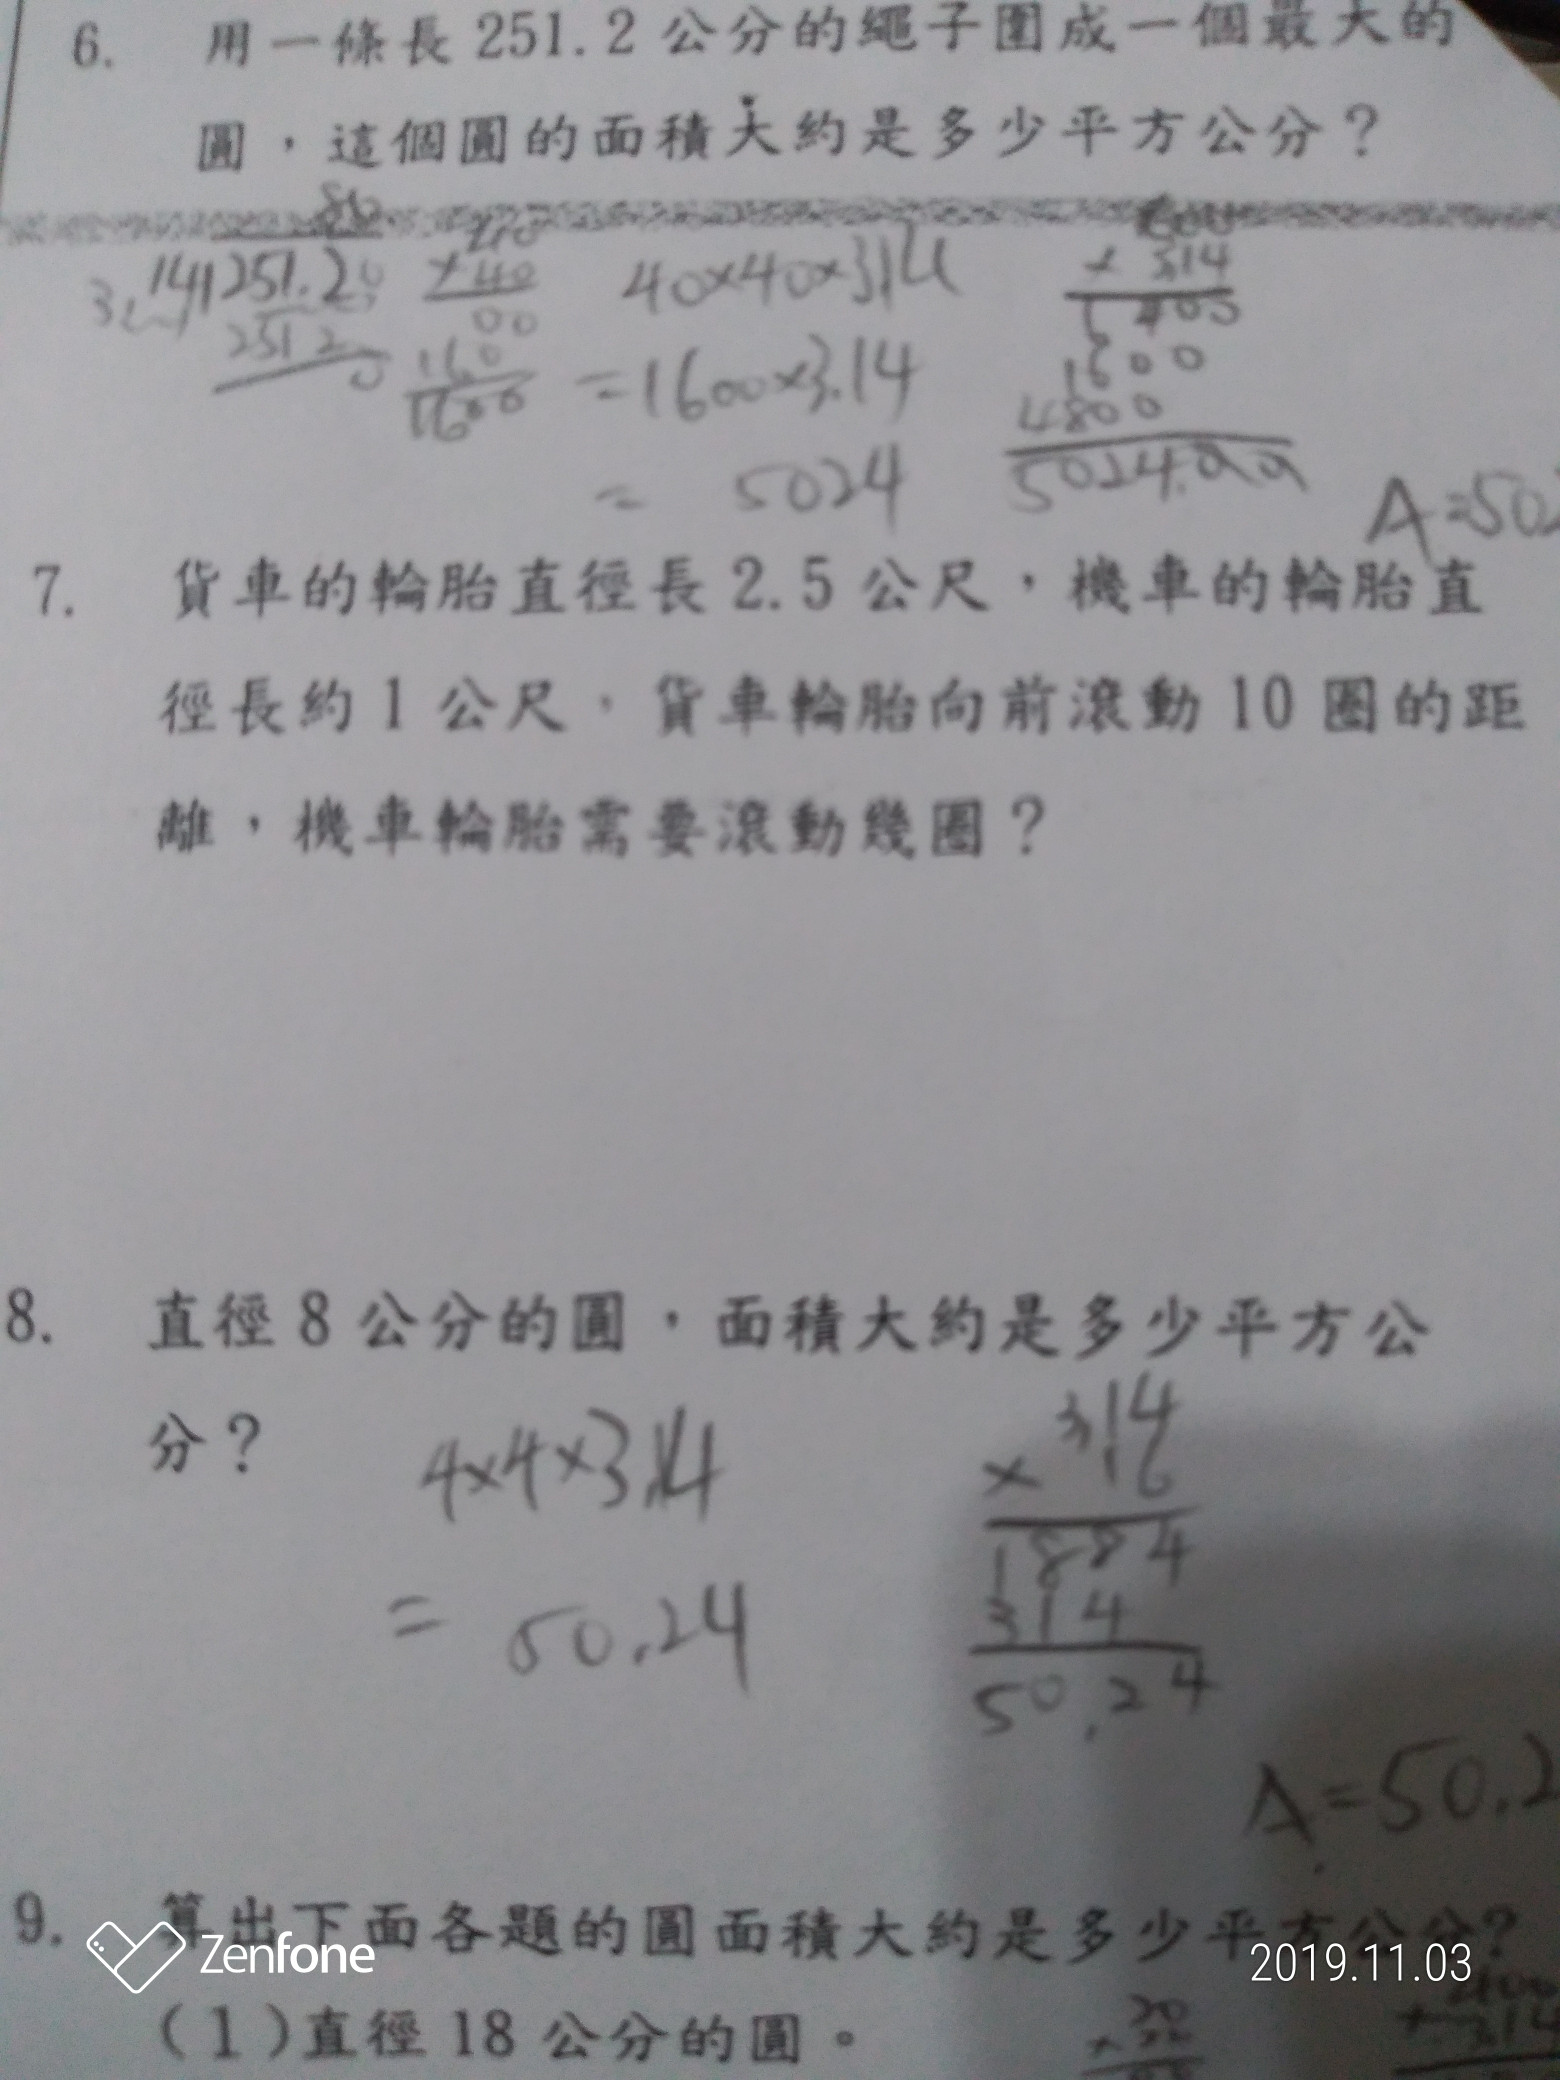 6. 用一條長 251.2 公分的繩子圍成一個最大的
圓，這個圓的面積大約是多少平方公分？
80
3.14 251.20
2512
0
40
×40
00
160
1600
40×40×3.14
=1600×3.14
= 5024
×314
1600
4800
5024.00
A=50
7. 貨車的輪胎直徑長 2.5 公尺，機車的輪胎直
徑長約 1 公尺，貨車輪胎向前滾動 10 圈的距
離，機車輪胎需要滾動幾圈？
8. 直徑 8 公分的圓，面積大約是多少平方公
分？
4×4×3.14
= 50.24
314
× 16
1884
314
50.24
A=50.2
9. 算出下面各題的圓面積大約是多少平方公分？
(1)直徑 18 公分的圓。
20
400
×3.14
Zenfone
2019.11.03